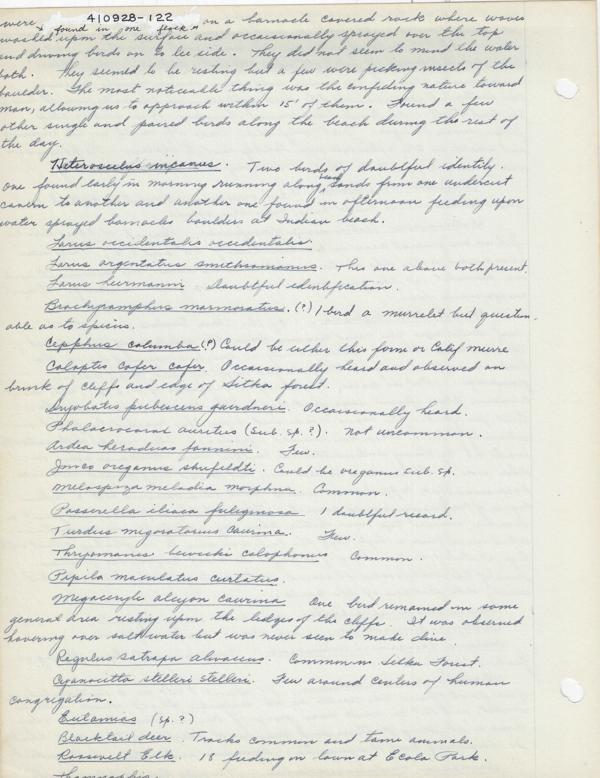 410928-122
were found in one flock on a barnacle covered rock where waves
washed upon the surface and occasionally sprayed over the top
and driving birds on to lee side. They did not seem to mind the water
bath. They seemed to be resting but a few were picking insects of the
boulder. The most noticeable thing was the confiding nature toward
man, allowing us to approach within 15' of them. Found a few
other single and paired birds along the beach during the rest of
the day.
Heteroscelus incanus. Two birds of doubtful identity.
One found early in morning running along beach sands from one undercut
cavern to another and another one found in afternoon feeding upon
water sprayed barnacle boulders at Indian beach.
Larus occidentalis occidentalis
Larus argentatus smithsonianus. This one above both present.
Larus heermanni Doubtful identification.
Brachyramphus marmoratus. (?) 1 bird a murrelet but question-
able as to species.
Cepphus columba (?) Could be either this form or Calif murre
Colaptes cafer cafer. Occasionally heard and observed on
brink of cliffs and edge of Sitka forest.
Dryobates pubescens gairdneri. Occasionally heard.
Phalacrocorax auritus (Sub. sp.?). Not uncommon.
Ardea herodias fannini. Few.
Junco oreganus shufeldti. Could be oreganus sub. sp.
Melospiza melodia morphna. Common.
Passerella iliaca fuliginosa 1 doubtful record.
Turdus migratorius caurinus. Few.
Thryomanes bewicki calophonus Common.
Pipilo maculatus curtatus.
Megaceryle alcyon caurina One bird remained in same
general area resting upon the ledges of the cliffs. It was observed
hovering over salt water but was never seen to make dive.
Regulus satrapa olivaceus. Common in Sitka Forest.
Cyanocitta stelleri stelleri. Few around centers of human
congregation.
Eutamias (sp.?)
Blacktail deer. Tracks common and tame animals.
Roosevelt Elk. 18 feeding on lawn at Ecola Park.
Thamnophis.